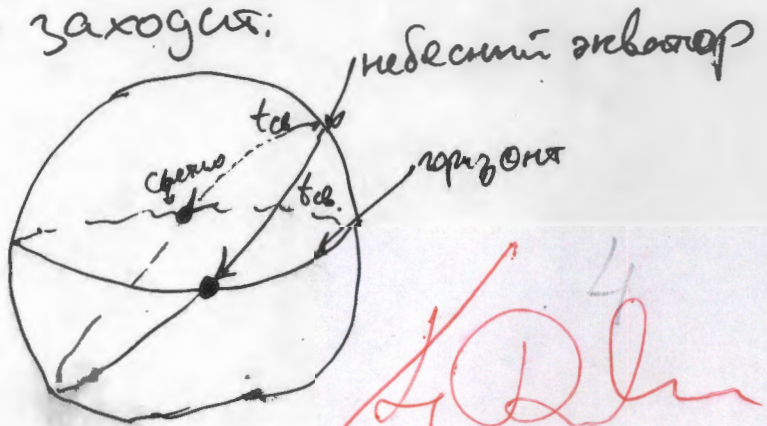 заходит:
небесный экватор
tсв
светило
горизонт
tсв.
4